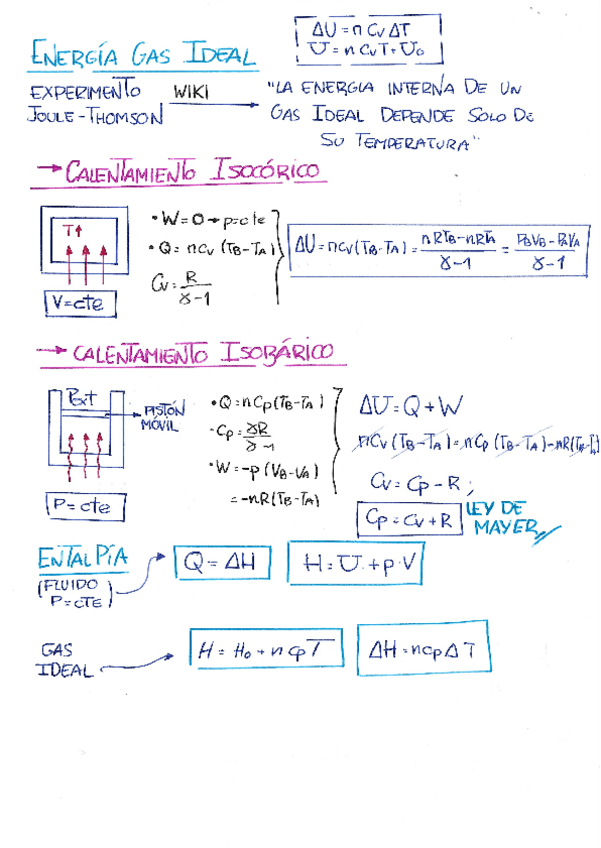 ENERGÍA GAS IDEAL
ΔU = n Cv ΔT
U = n CvT + U₀
EXPERIMENTO JOULE-THOMSON
WIKI
"LA ENERGIA INTERNA DE UN
GAS IDEAL DEPENDE SOLO DE
SU TEMPERATURA"
→ CALENTAMIENTO ISOCÓRICO
T↑
V=cte
• W=0 → p=cte
• Q= nCv (TB-TA)
Cv= R/γ-1
ΔU=nCv(TB-TA)= nRTB-nRTA/γ-1 = PBVB-PAVA/γ-1
→ CALENTAMIENTO ISOBÁRICO
Pext
PISTÓN
MÓVIL
P=cte
• Q=nCp(TB-TA)
• Cp= γR/γ-1
• W=-p(VB-VA)
=-nR(TB-TA)
ΔU=Q+W
nCv(TB-TA)=nCp(TB-TA)-nR(TB-TA)
Cv=Cp-R;
Cp=Cv+R
LEY DE
MAYER
ENTALPÍA
(FLUIDO
P=cTE)
Q=ΔH
H=U+p·V
GAS
IDEAL
H=H₀+nCpT
ΔH=nCpΔT